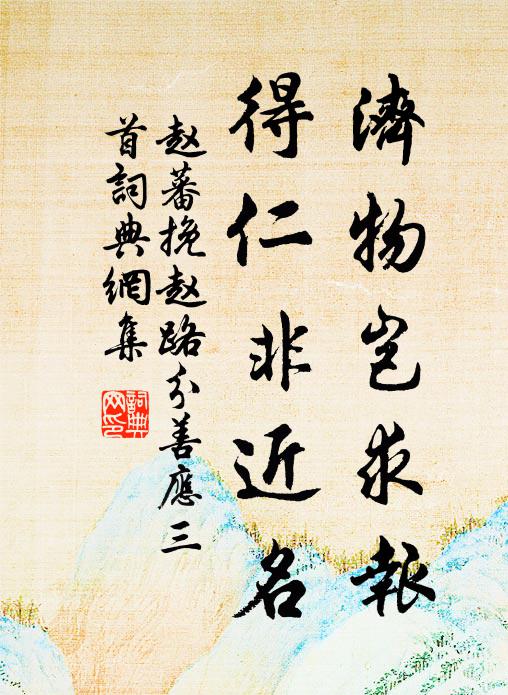 濟物岂求報
得仁非近名
赵蕃挽赵路分善應三
首詞典網集
詞典
网印